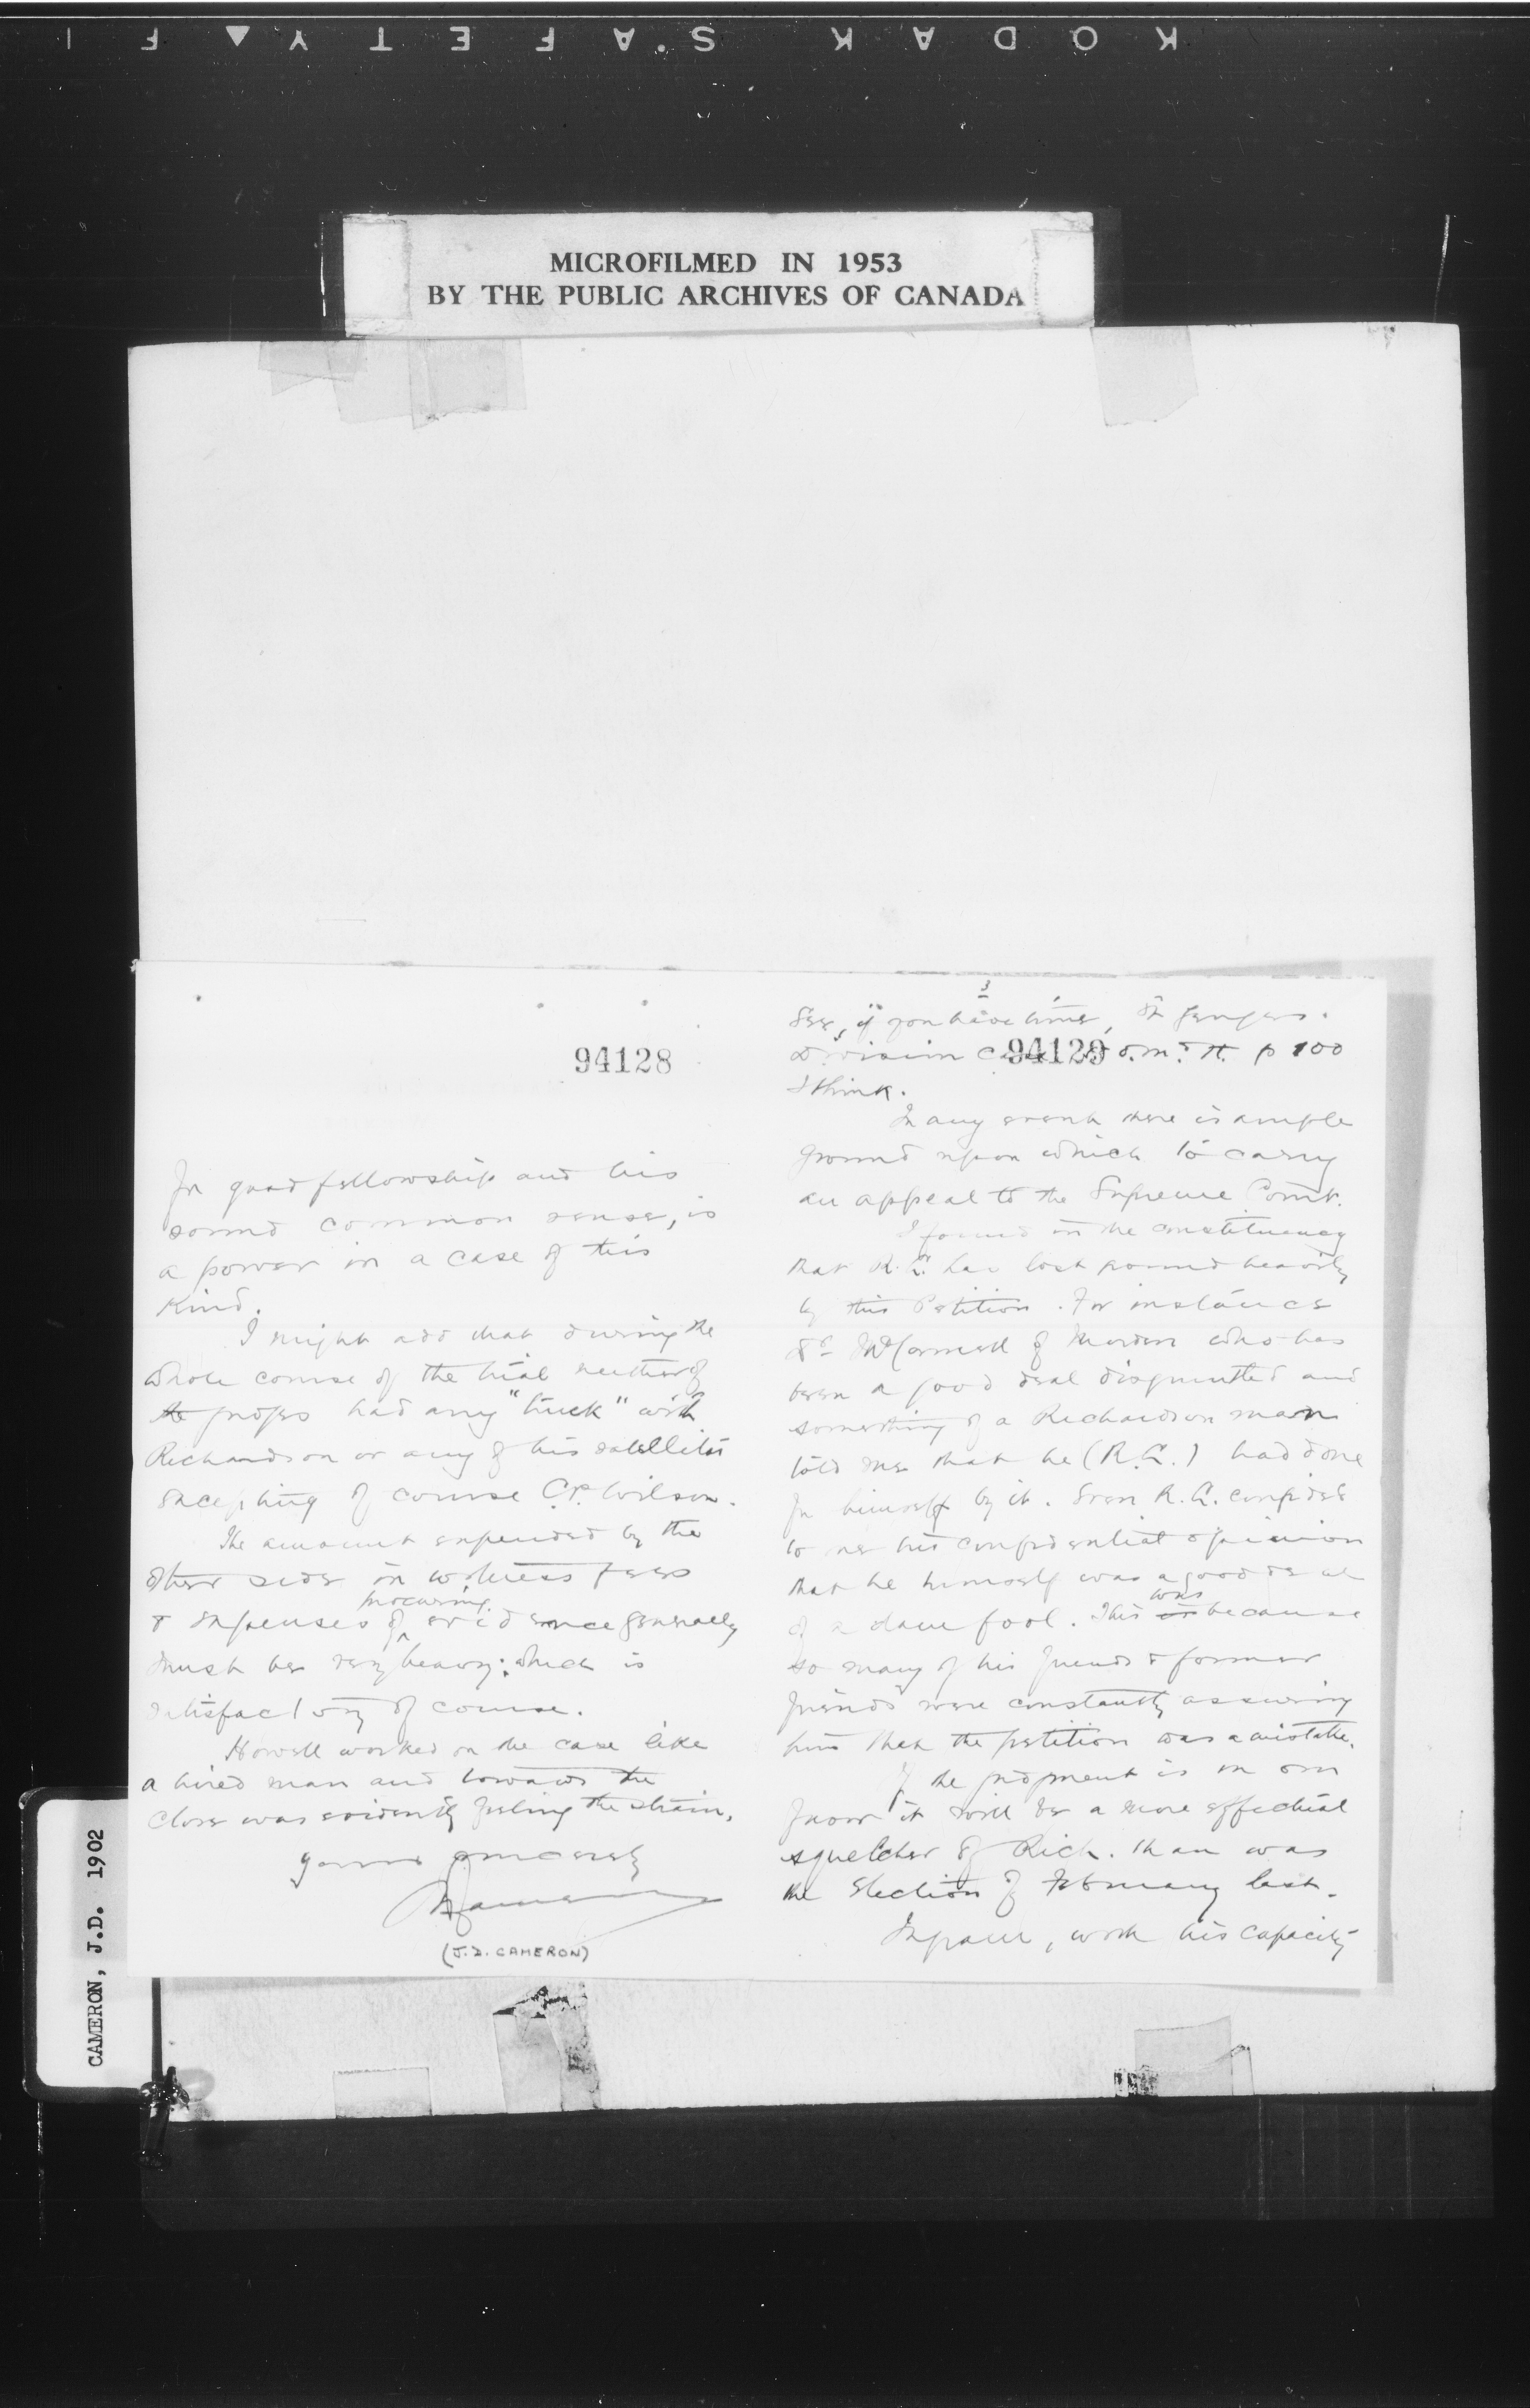 KODAK SAFETY FI
MICROFILMED IN 1953
BY THE PUBLIC ARCHIVES OF CANADA
94128
for good fellowship and his
sound common sense, is
a power in a case of this
kind.
I might add that during the
whole course of the trial neither of
the judges had any "truck" with
Richardson or any of his satellites
excepting of course C.P. Wilson.
The amount expended by the
other side in witness fees
& expenses of procuring evidence generally
must be very heavy: which is
satisfactory of course.
Howell worked on the case like
a hired man and towards the
close was evidently feeling the strain.
Yours sincerely
JDCameron
(J.D. CAMERON)
3
See, if you have time, St
Division 94129 O.M. & H. p 100
I think.
In any event there is ample
ground upon which to carry
an appeal to the Supreme Court.
I found in the constituency
that R.L. has lost ground heavily
by this Petition. For instance
Dr McCormick of Morden who has
been a good deal disgruntled and
something of a Richardson man
told me that he (R.L.) had done
for himself by it. Even R.L. confided
to me his confidential opinion
that he himself was a good deal
of a dam fool. This was because
so many of his friends & former
friends were constantly assuring
him that the petition was a mistake.
If the judgment is in our
favor it will be a more effectual
squelcher of Rich. than was
the election of February last.
with his capacity
CAMERON, J.D. 1902